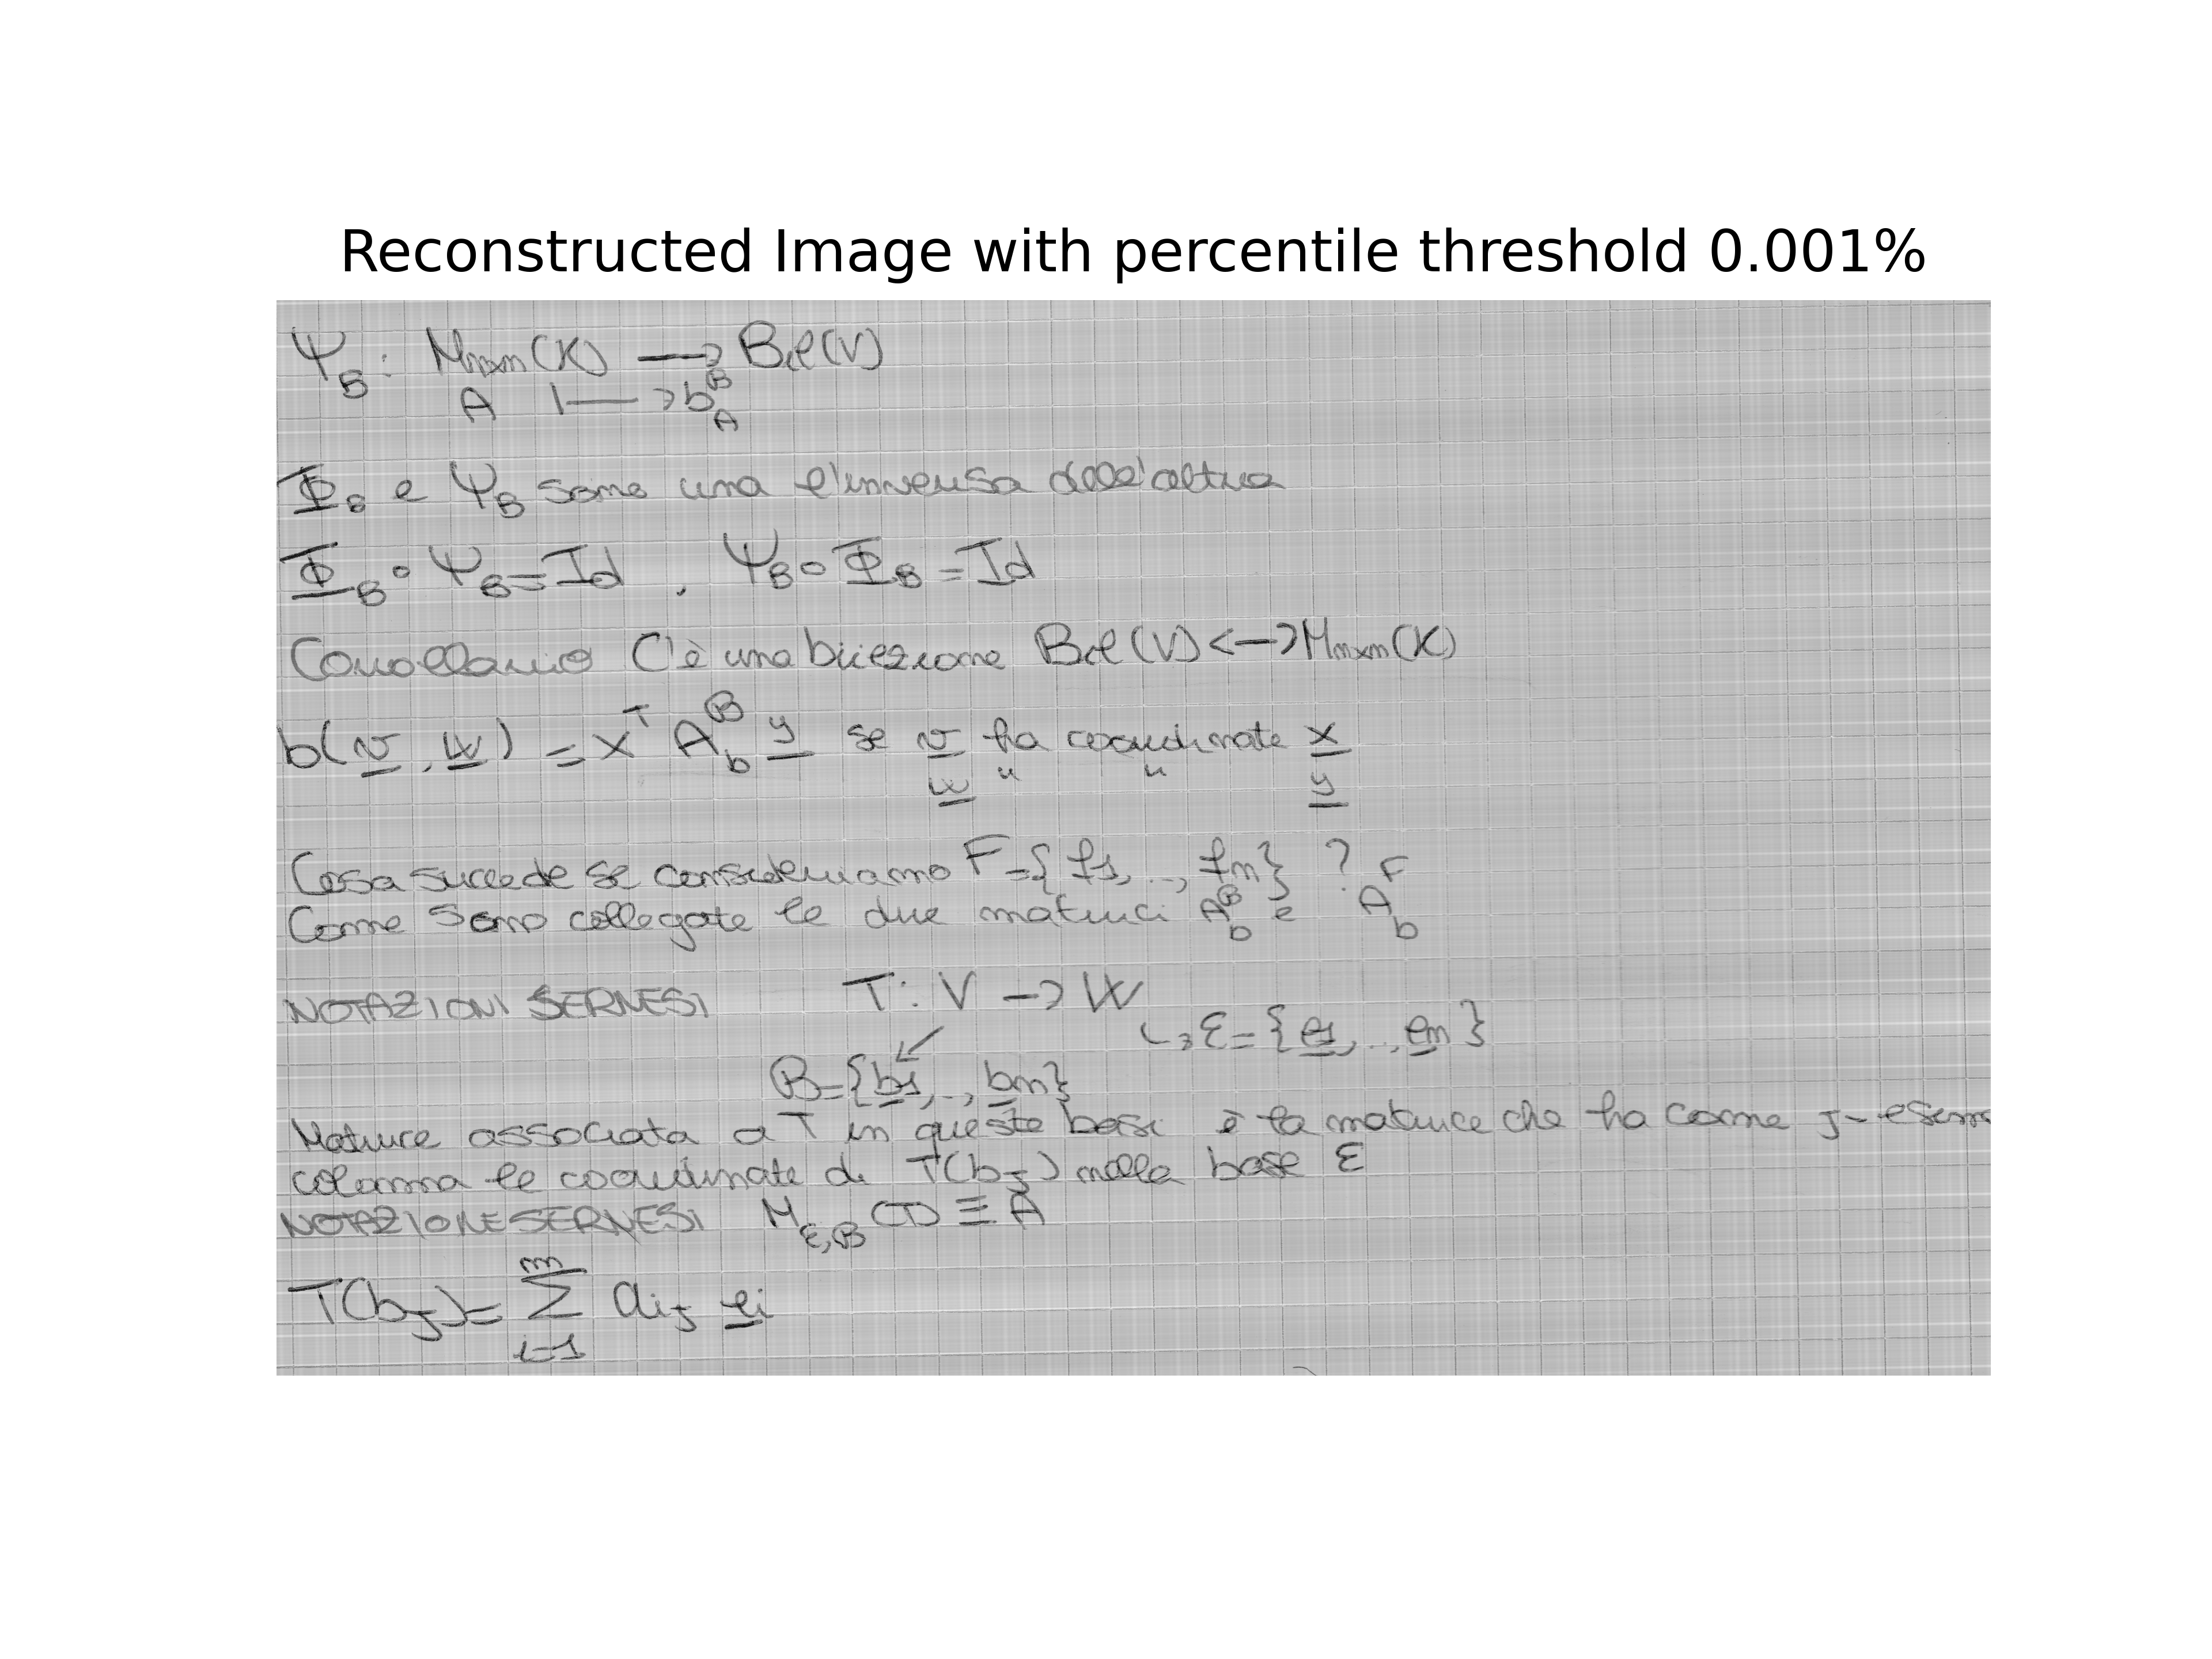 Reconstructed Image with percentile threshold 0.001%
Ψ_B : M_{n×n}(K) → Bil(V)
A ↦ b_A^B
Φ_B e Ψ_B sono una l'inversa dell'altra
Φ_B ∘ Ψ_B = Id , Ψ_B ∘ Φ_B = Id
Corollario C'è una biiezione Bil(V) <—> M_{n×n}(K)
b(v, w) = x^T A_b^B y se v ha coordinate x
w " " y
Cosa succede se consideriamo F={f1,..,fn} ?
Come sono collegate le due matrici A_b^B e A_b^F
NOTAZIONI SERNESI T: V → W
↳ ℰ={e1,..,em}
B={b1,..,bn}
Matrice associata a T in queste basi è la matrice che ha come j-esima
colonna le coordinate di T(bj) nella base ℰ
NOTAZIONE SERNESI M_{ℰ,B}(T) ≡ A
T(bj)= Σ_{i=1}^{m} aij ei